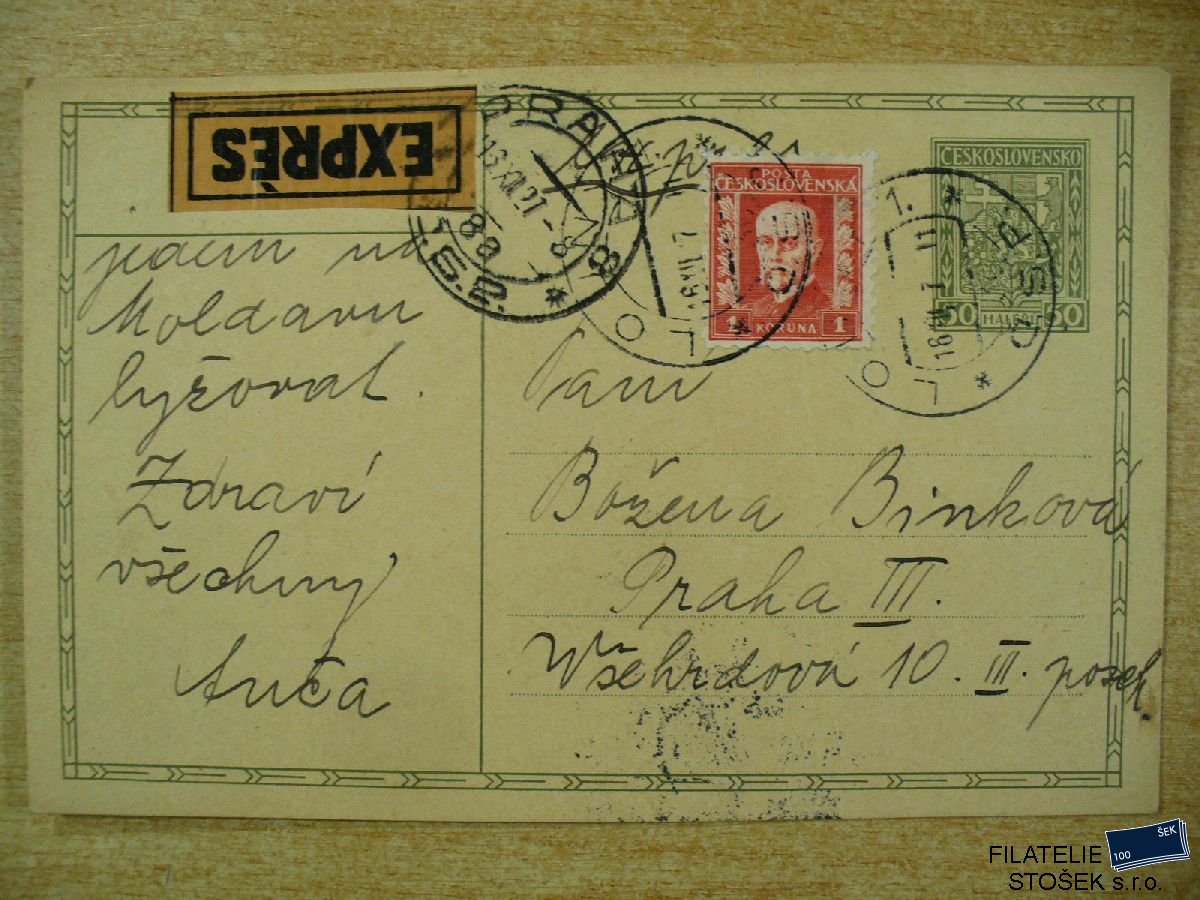 EXPRÈS
PRAHA 8
16.XII.27-8
8a
Č.S.P.
POŠTA
ČESKOSLOVENSKÁ
1 KORUNA 1
ČESKOSLOVENSKO
50 HALÉŘŮ 50
na
Moldavu
lyžovat.
Zdraví
všechny
Anča
Paní
Božena Binková
Praha III.
Všehrdova 10. III. posch.
FILATELIE
STOŠEK s.r.o.
100 ŠEK